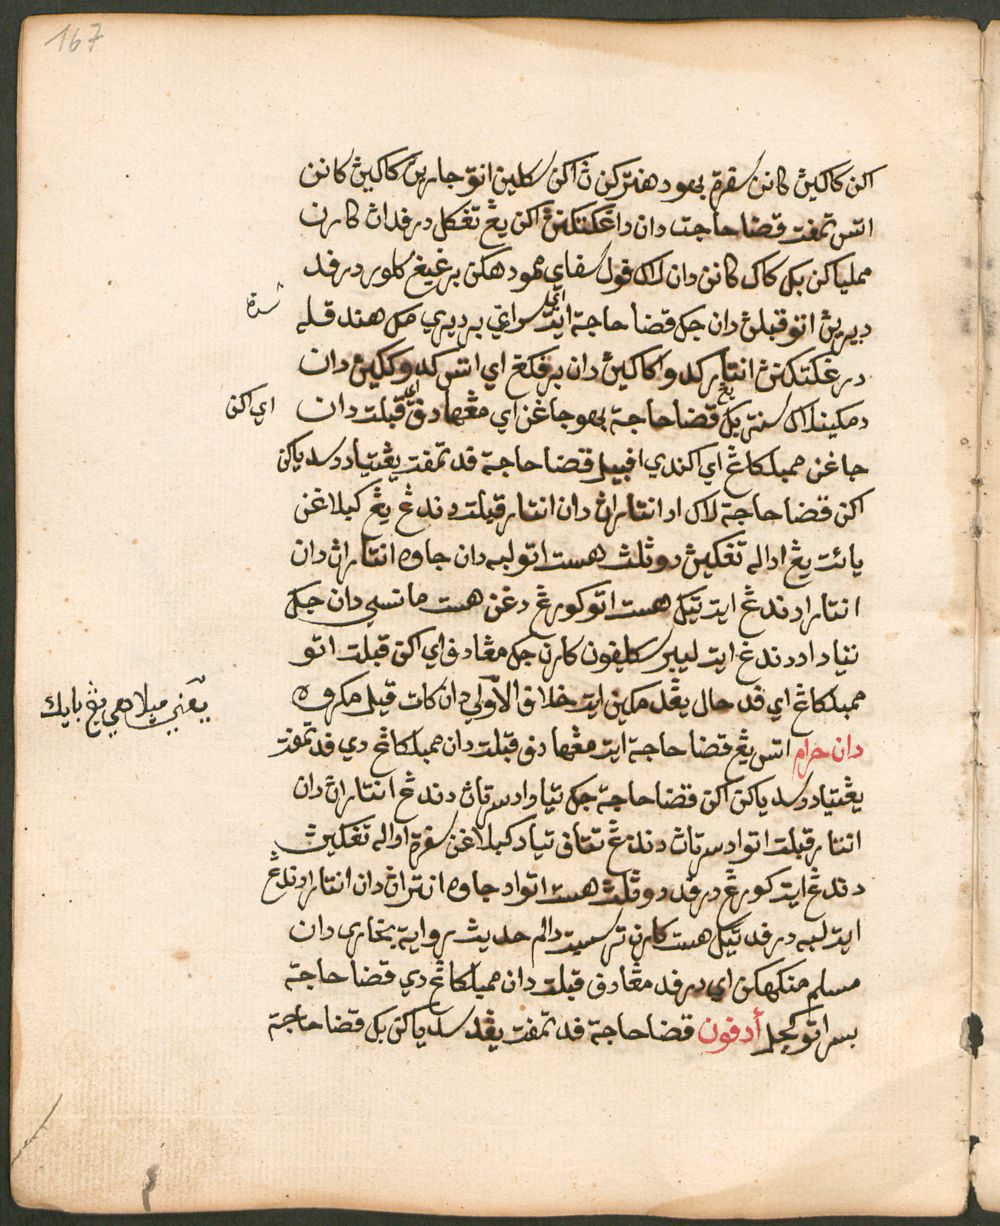 167
اكن كاكيڽ كانن سفرة بهو دهنتركن ڽ اكن سكلين اتو جارين كاكيڽ كانن
اتس تمفت قضا حاجت دان داڠكتكنڽ اكن يڠ تڠكل درفداڽ كارن
مملياكن بكي كاك كانن دان لاك ڤول سفاي ممودهكن برڠيڠ كلور درفد
شرة
ديرين اتو قبلڽ دان جك قضا حاجة اي ايت سراي برديري مك هندقله
درڠكتكنڽ انتار كدوا كاكيڽ دان برڤڬڠ اي اتس كدو ككيڽ دان
دمكينلاك سنتر بكي يڠ قضا حاجة بهو جاڠن اي مڠهادڤ اكن قبلت دان
اي اكن
جاڠن ممبلكاڠ اي اكندي افبيل قضا حاجة فد تمفت يڠتياد دسدياكن
اكن قضا حاجة لاك اد انتاراڽ دان انتار قبلت دندڠ يڠ كبلاڠن
يائت يڠ اداله تڠكيڽ دو ثلث هست اتو لبه دان جاوه انتاراڽ دان
انتار دندڠ ايت تيك هست اتو كورڠ دڠن هست مانسي دان جك
تياد اد دندڠ ايت ليبر سكليفون كارن جك مڠادف اي اكن قبلت اتو
ممبلكاڠ اي فد حال يڠدمكين ايت خلاف الأولى دان كات قيل مكروه
يعني ميلاهي يڠ بايك
دان حرام اتس يڠ قضا حاجة ايت مڠهادف قبلت دان ممبلكاڠ دي فد تمفت
يڠتياد دسدياكن اكن قضا حاجة جك تياد اد سرتاڽ دندڠ انتاراڽ دان
انتار قبلت اتو اد سرتاڽ دندڠ تتافي تياد كبلاڠن سفرة اداله تڠكيڽ
دندڠ ايت كورڠ درفد دو ثلث هست اتو اد جاوه انتراڽ دان انتار دندڠ
ايت لبه درفد تيك هست كارن ترسبت دالم حديث رواية بخاري دان
مسلم منكهكن اي درفد مڠادف قبلت دان ممبلكاڠ دي قضا حاجة
بسر اتو كچل أدفون قضا حاجة فد تمفت يڠد سدياكن بكي قضا حاجة